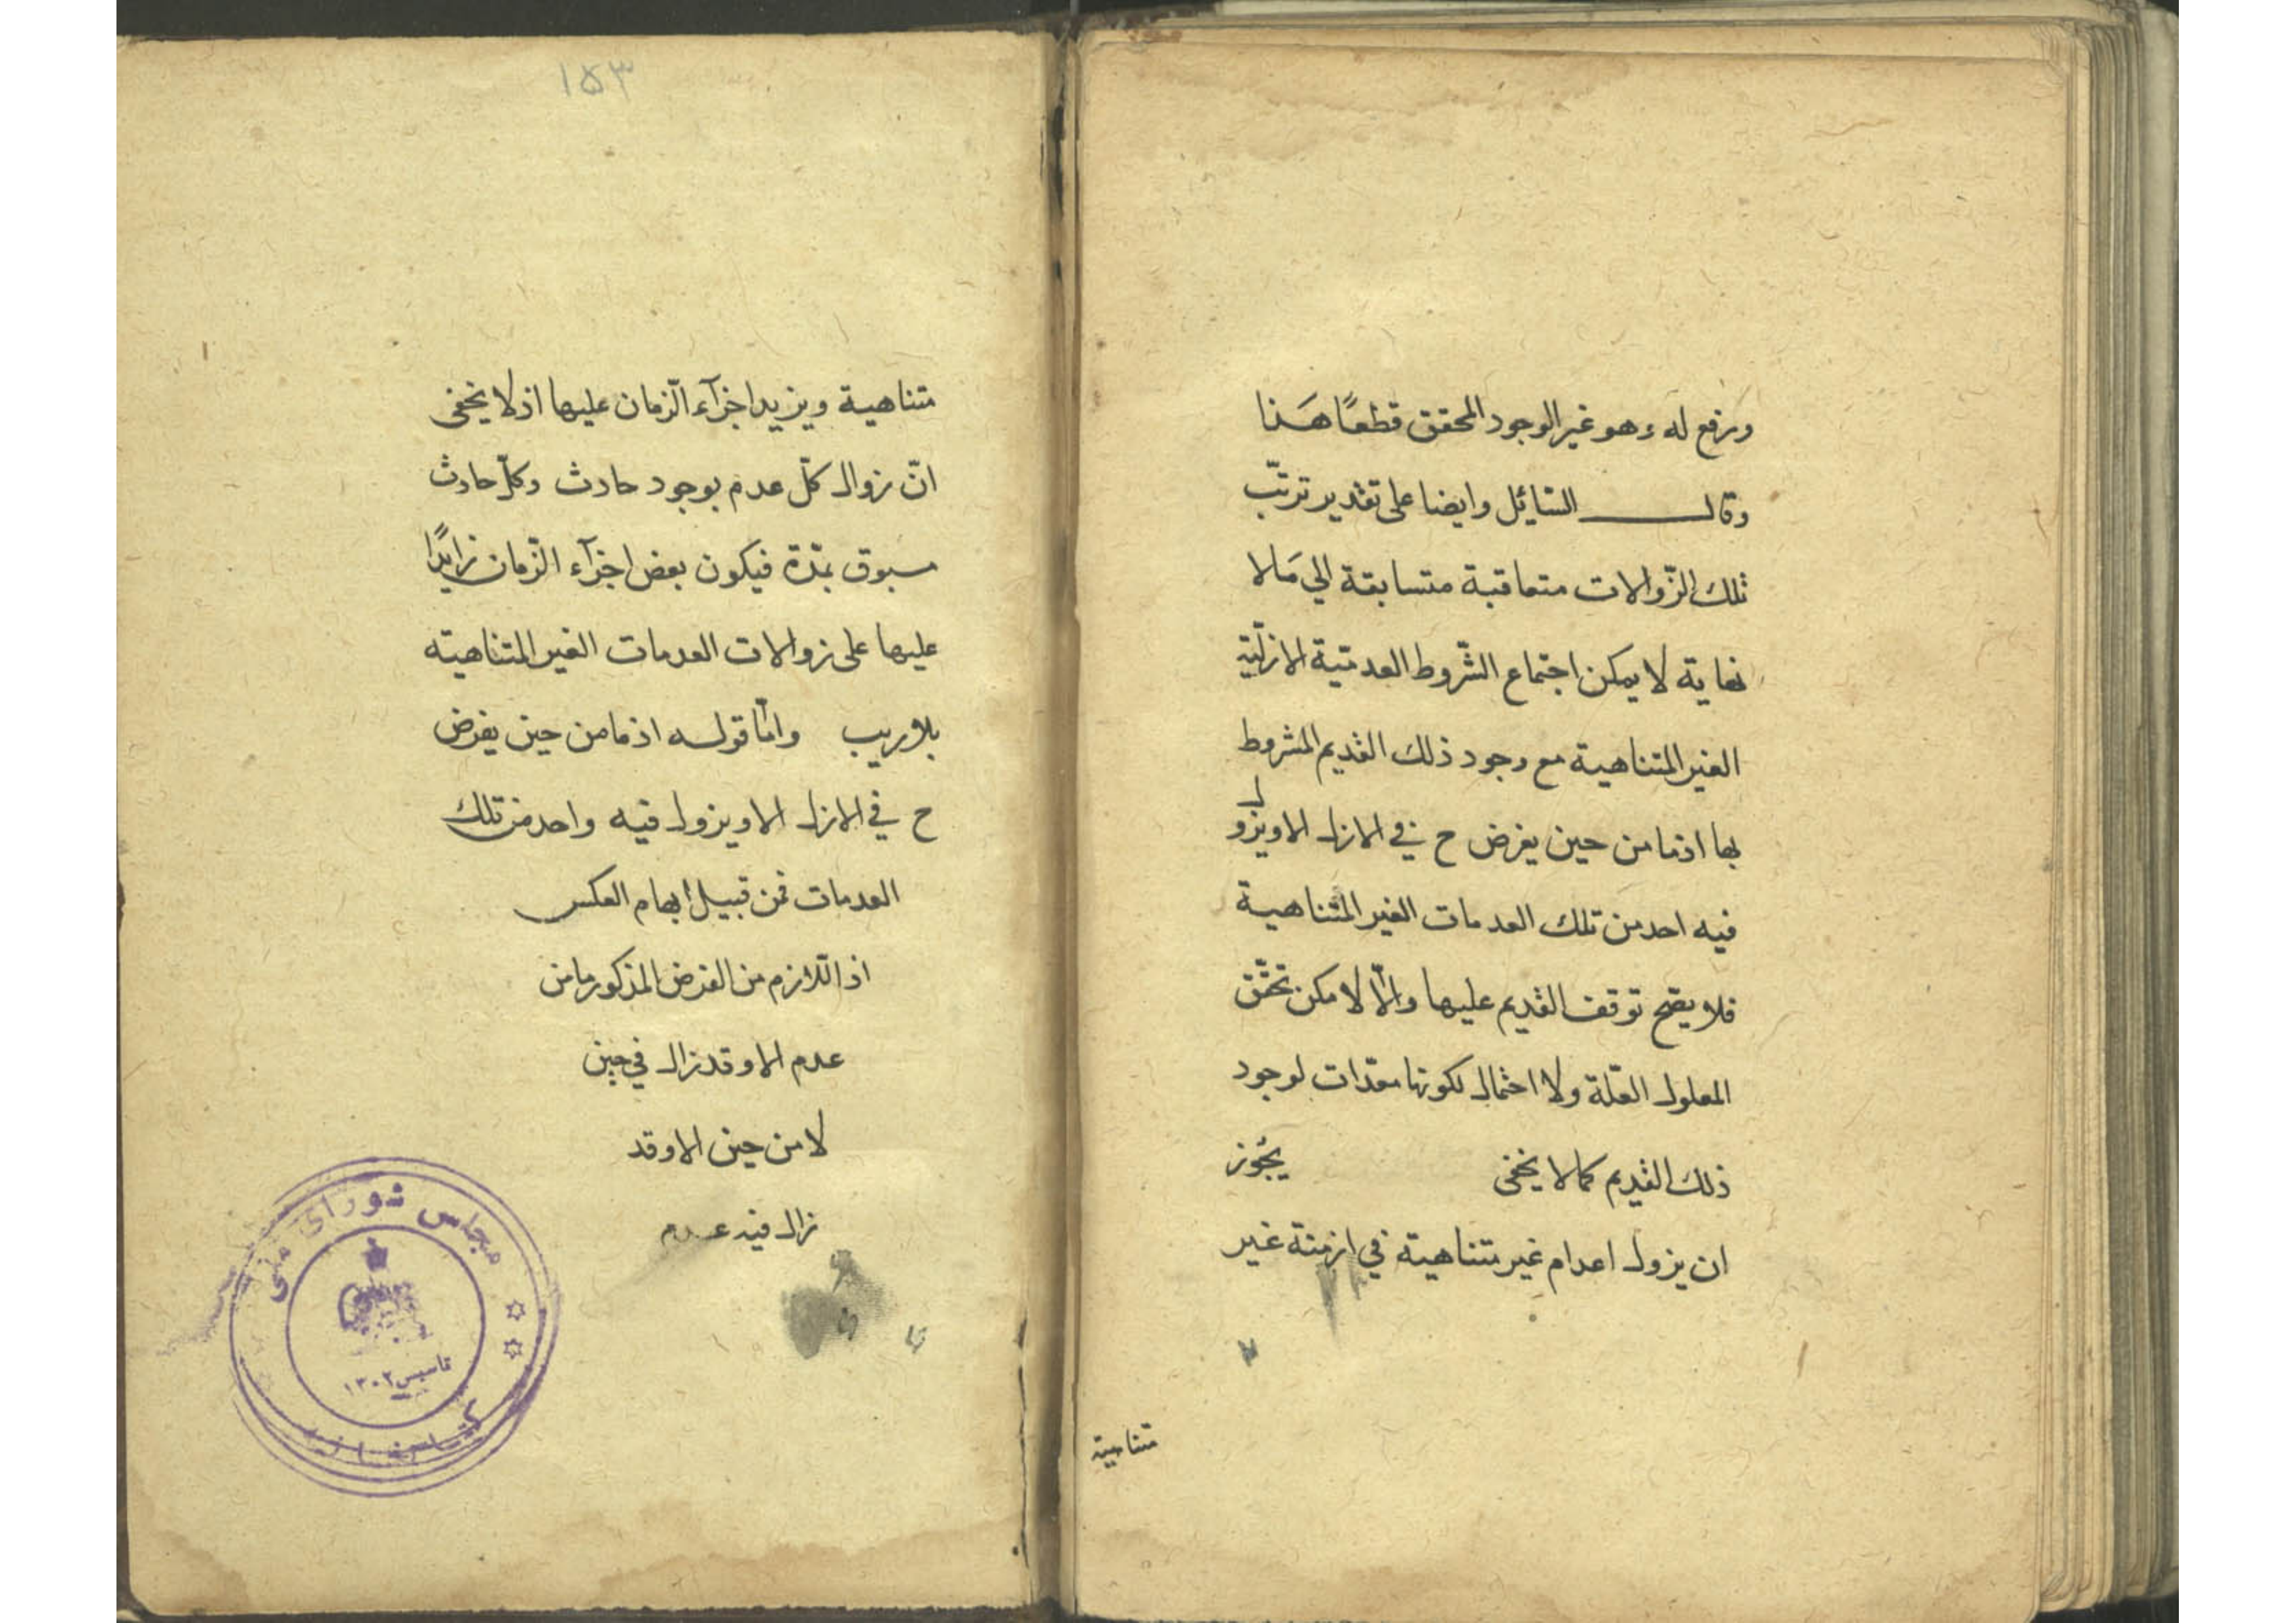 ورفع له وهو غير الوجود المحقق قطعًا هَذا
وقال السّائل وايضا على تقدير ترتّب
تلك الزّوالات متعاقبة متسابقة الي مَالا
نهاية لا يمكن اجتماع الشّروط العدميّة الازليّة
الغير المتناهية مع وجود ذلك القديم المشروط
بها اذ ما من حين يفرض ح في الازل الا ويزول
فيه احد من تلك العدمات الغير المتناهية
فلا يصّح توقف القديم عليها والّا لامكن تحقّق
المعلول العلّة ولا احتمال لكونها معدّات لوجود
ذلك القديم كما لا يخفى يجُوز
ان يزول اعدام غير متناهية في ازمنة غير
متناهية
١٥٣
متناهية ويزيد اجزآء الزّمان عليها اذ لا يخفى
انّ زوال كلّ عدم بوجود حادث وكلّ حادث
مسبوق بمدّة فيكون بعض اجزآء الزّمان زايدًا
عليها على زوالات العدمات الغير المتناهية
بلا ريب وامّا قوله اذ ما من حين يفرض
ح في الازل الا ويزول فيه واحد من تلك
العدمات فمن قبيل ايهام العكس
اذ اللّازم من الفرض المذكور ما من
عدم الا وقد زال في حين
لا من حين الا وقد
زال فيه عدم
مجلس شورای ملی
تاسیس ١٣٠٢
کتابخانه